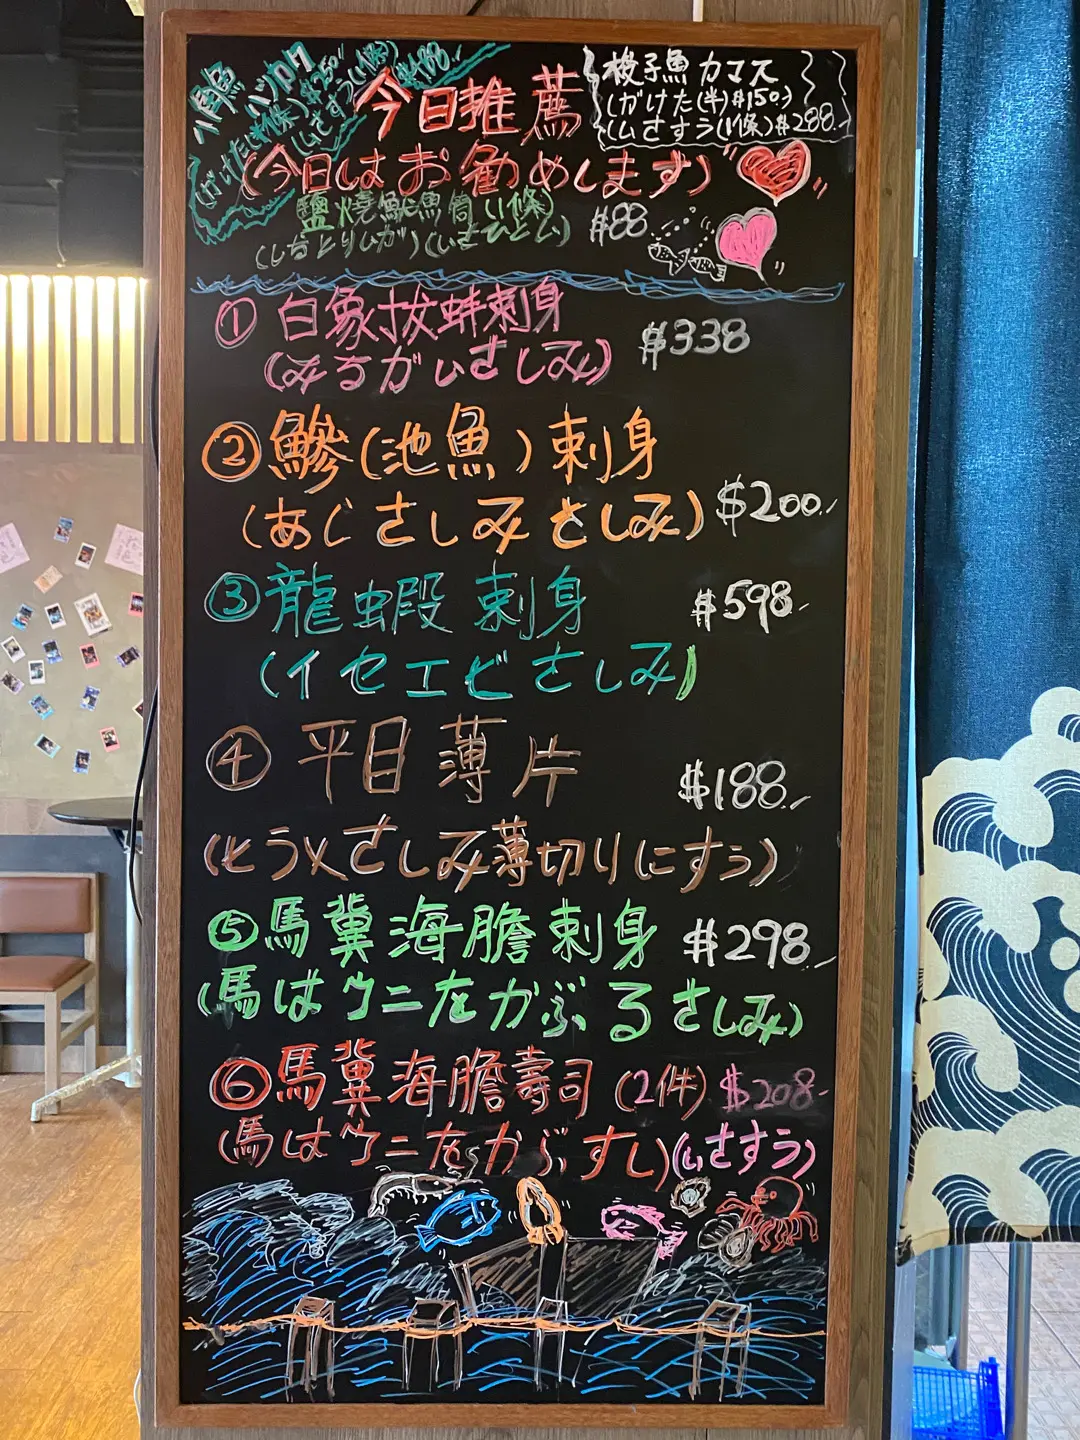 今日推薦
(今日はお勧めします)
梭子魚 カマス
(がけた(半)$150)
(ムさすう(1條)$288
$250
$188
鹽燒魷魚筒(1條)
$88
① 白象拔蚌刺身
(みるがいさしみ)
$338
② 鰺(池魚)刺身
(あじさしみさしみ)
$200
③ 龍蝦刺身
$598
(イセエビさしみ)
④ 平目薄片
$188
(ヒラメさしみ薄切りにすう)
⑤ 馬糞海膽刺身 $298
(馬はウニをかぶるさしみ)
⑥ 馬糞海膽壽司(2件) $208
(馬はウニをかぶすし)(ムさすう)